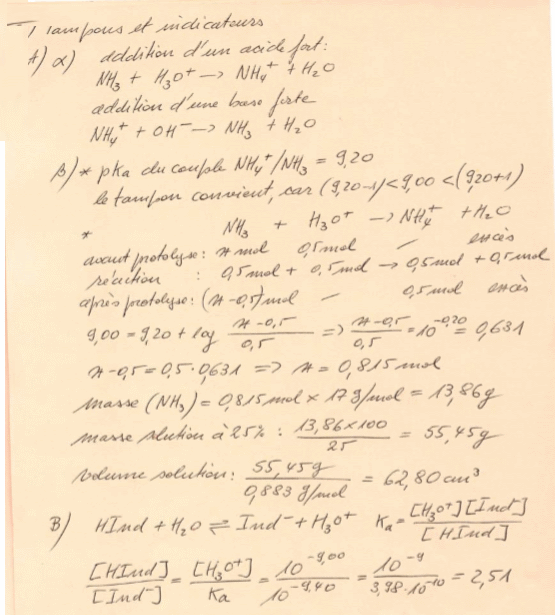 I Tampons et indicateurs
A) α) addition d'un acide fort:
NH₃ + H₃O⁺ → NH₄⁺ + H₂O
addition d'une base forte
NH₄⁺ + OH⁻ → NH₃ + H₂O
β) * pKa du couple NH₄⁺/NH₃ = 9,20
le tampon convient, car (9,20-1) < 9,00 < (9,20+1)
* NH₃ + H₃O⁺ → NH₄⁺ + H₂O
avant protolyse: x mol 0,5 mol – excès
réaction : 0,5 mol + 0,5 mol → 0,5 mol + 0,5 mol
après protolyse: (x-0,5) mol – 0,5 mol excès
9,00 = 9,20 + log (x-0,5)/0,5 => (x-0,5)/0,5 = 10^-0,20 = 0,631
x-0,5 = 0,5·0,631 => x = 0,815 mol
masse (NH₃) = 0,815 mol × 17 g/mol = 13,86 g
masse solution à 25% : (13,86×100)/25 = 55,45 g
volume solution: 55,45 g/0,883 g/mol = 62,80 cm³
B) HInd + H₂O ⇌ Ind⁻ + H₃O⁺ Ka = [H₃O⁺][Ind⁻]/[HInd]
[HInd]/[Ind⁻] = [H₃O⁺]/Ka = 10^-9,00/10^-9,40 = 10^-9/3,98·10^-10 = 2,51